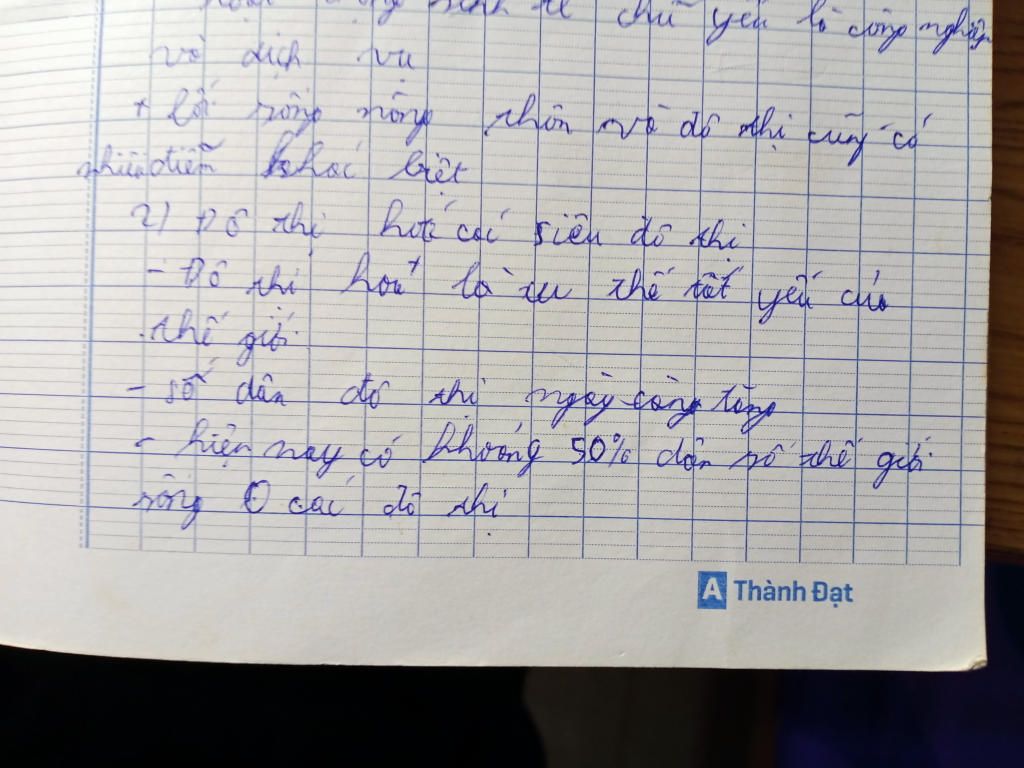 chủ yếu là công nghiệp
và dịch vụ
+ lối sống nông thôn và đô thị cũng có
nhiều điểm khác biệt
2) Đô thị hoá các siêu đô thị
- Đô thị hoá là xu thế tất yếu của
thế giới
- số dân đô thị ngày càng tăng
- hiện nay có khoảng 50% dân số thế giới
sống ở các đô thị
A Thành Đạt